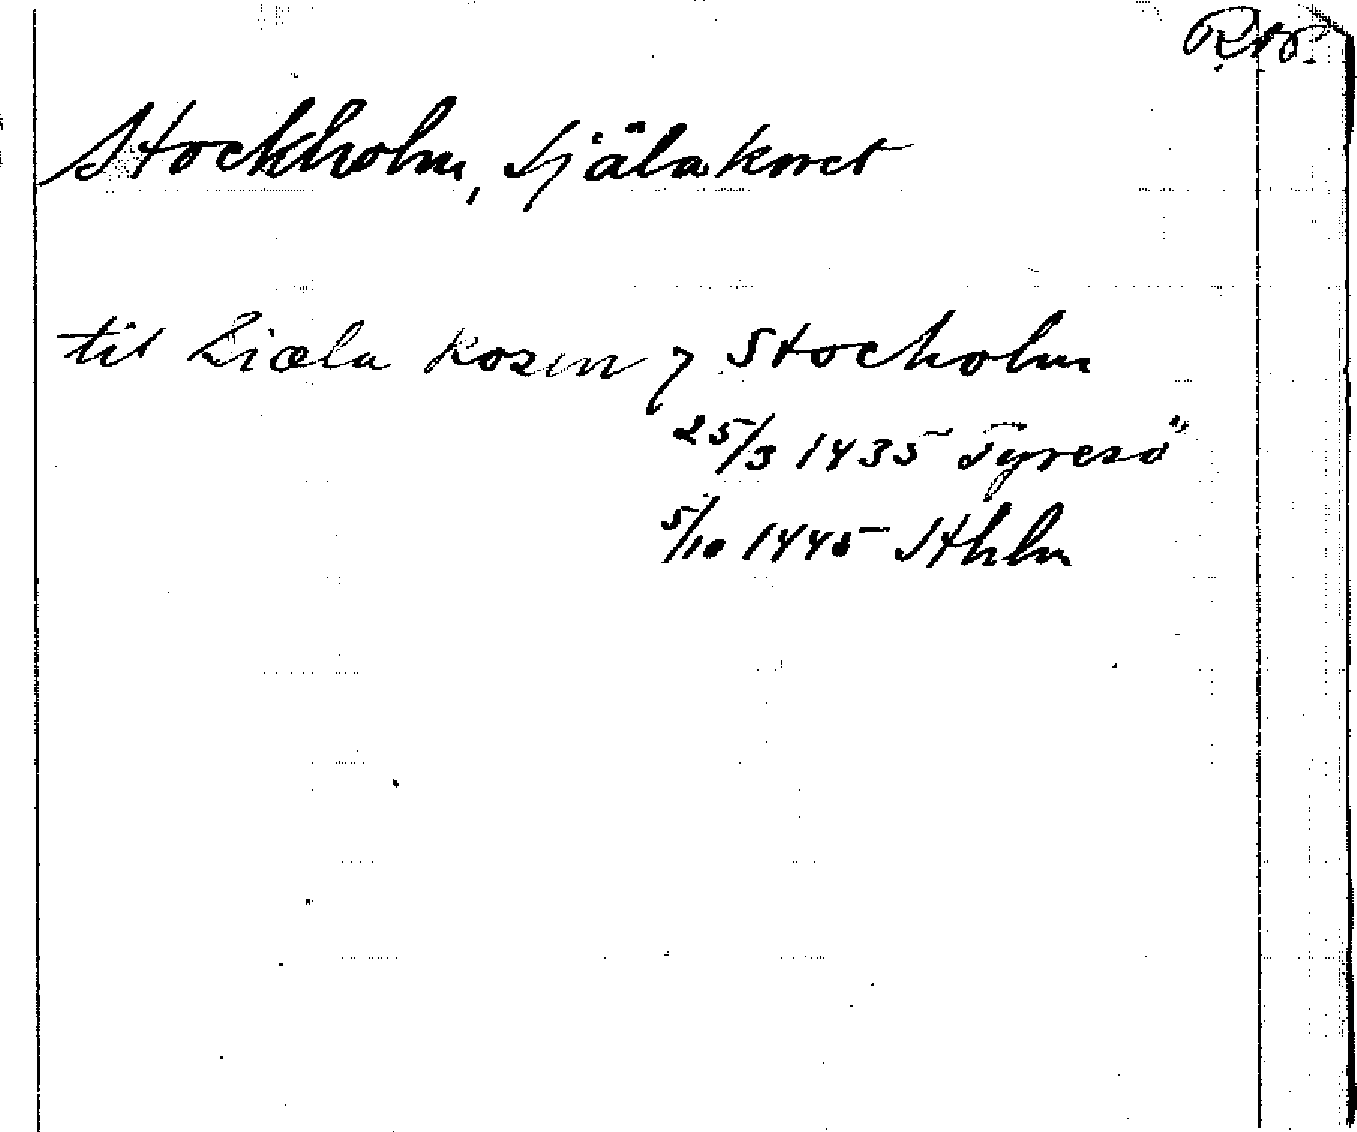 Stockholm, Själakoret
til Siæla kosen j Stocholm
25/3 1435 Tyresö
5/10 1445 Sthlm